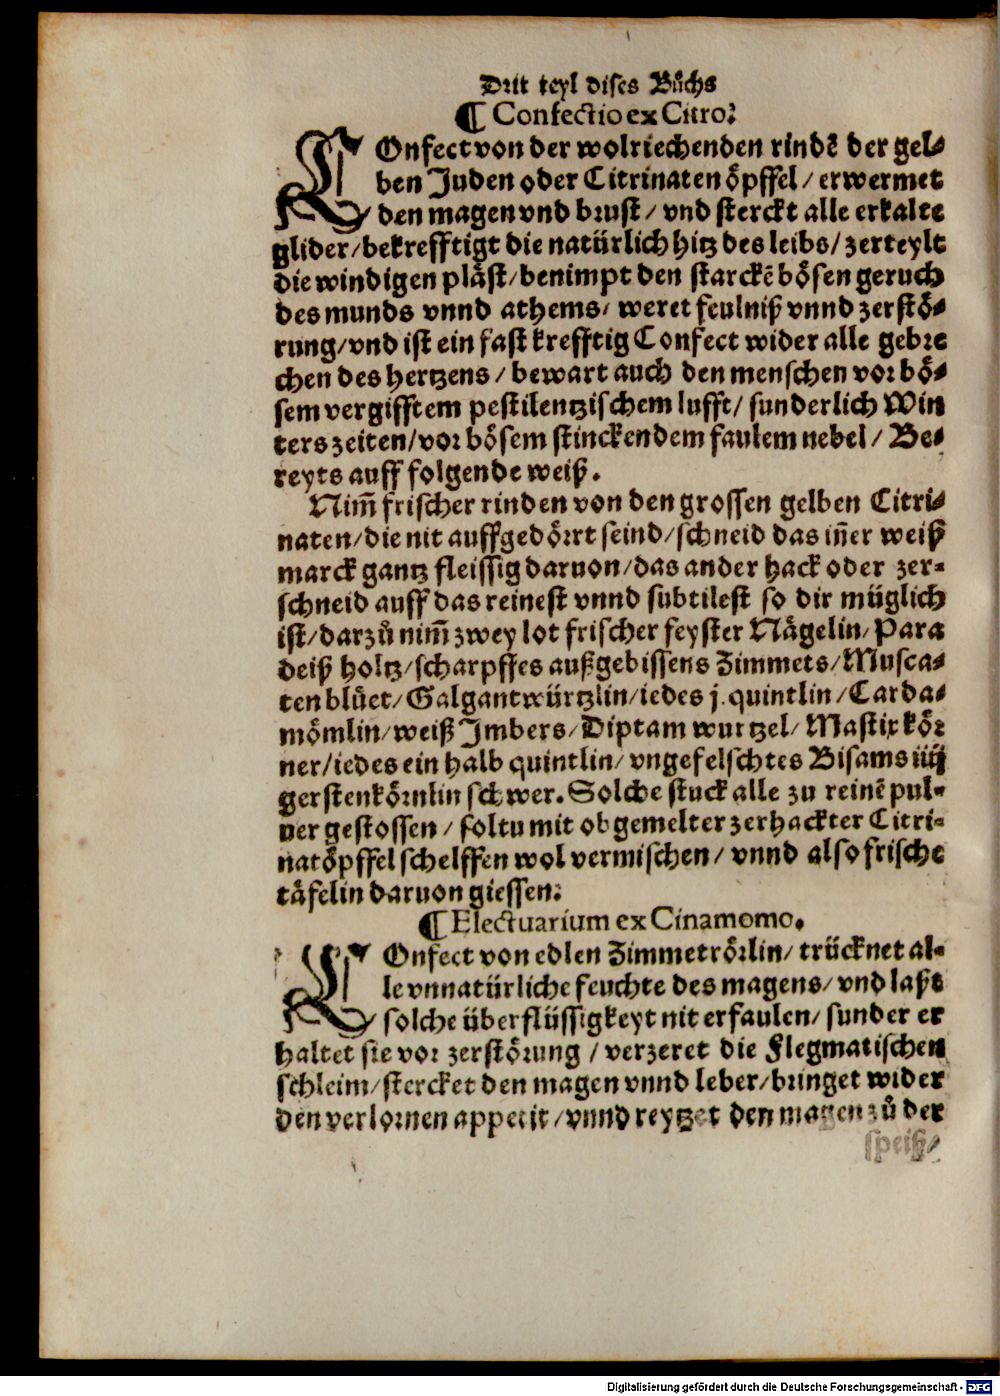 Drit teyl dises Bůchs
¶ Confectio ex Citro.
COnfect von der wolriechenden rindẽ der gel⸗
ben Juden oder Citrinaten öpffel/ erwermet
den magen vnd brust/ vnd sterckt alle erkalte
glider/ bekrefftigt die natürlich hitz des leibs/ zerteylt
die windigen pläst/ benimpt den starckẽ bösen geruch
des munds vnnd athems/ weret feulniß vnnd zerstö⸗
rung/ vnd ist ein fast krefftig Confect wider alle gebre
chen des hertzens/ bewart auch den menschen vor bö⸗
sem vergifftem pestilentzischem lufft/ sunderlich Win
ters zeiten/ vor bösem stinckendem faulem nebel/ Be⸗
reyts auff folgende weiß.
Nim̃ frischer rinden von den grossen gelben Citri⸗
naten/ die nit auffgedörrt seind/ schneid das iñer weiß
marck gantz fleissig daruon/ das ander hack oder zer⸗
schneid auff das reinest vnnd subtilest so dir müglich
ist/ darzů nim̃ zwey lot frischer feyster Nägelin/ Para
deiß holtz/ scharpffes außgebissens Zimmets/ Musca⸗
ten blüet/ Galgantwürtzlin/ iedes j. quintlin/ Carda⸗
mömlin/ weiß Jmbers/ Diptam wurtzel/ Mastix kör
ner/ iedes ein halb quintlin/ vngefelschtes Bisams iiij
gerstenkörnlin schwer. Solche stuck alle zu reinẽ pul⸗
ver gestossen/ soltu mit obgemelter zerhackter Citri⸗
natöpffel schelffen wol vermischen/ vnnd also frische
täfelin daruon giessen.
¶ Electuarium ex Cinamomo.
COnfect von edlen Zimmetrörlin/ trücknet al⸗
le vnnatürliche feuchte des magens/ vnd laßt
solche überflüssigkeyt nit erfaulen/ sunder er
haltet sie vor zerstörung/ verzeret die Flegmatischen
schleim/ stercket den magen vnnd leber/ bringet wider
den verlornen appetit/ vnnd reytzet den magen zů der
speiß/
Digitalisierung gefördert durch die Deutsche Forschungsgemeinschaft - DFG